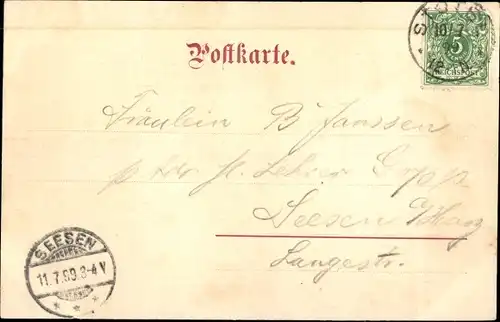 Postkarte.
5
REICHSPOST
10/7
Fräulein B Janssen
Lehrer
Seesen a/Harz
Langestr.
SEESEN
11.7.99.3-4V